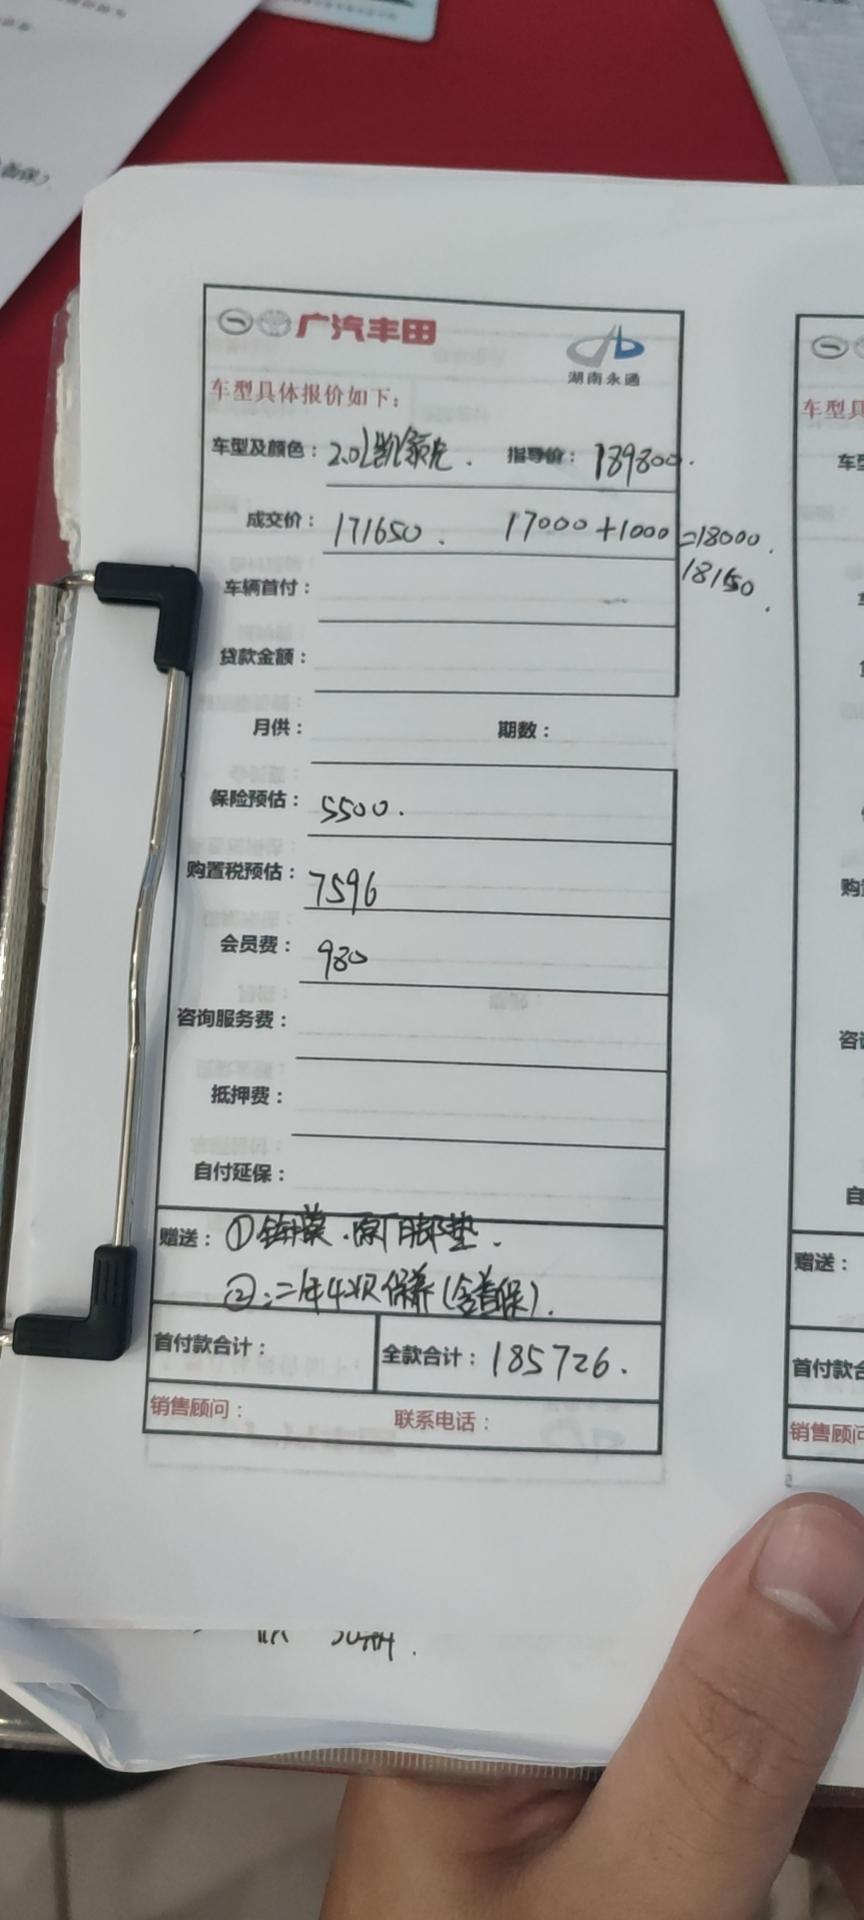 广汽丰田
湖南永通
车型具体报价如下：
车型及颜色：2.0L凯领先. 指导价：189800.
成交价：171650. 17000+1000=18000.
18150.
车辆首付：
贷款金额：
月供： 期数：
保险预估：5500.
购置税预估：7596
会员费：980
咨询服务费：
抵押费：
自付延保：
赠送：①全车膜.原厂脚垫.
②:二年4次保养(含首保).
首付款合计： 全款合计：185726.
销售顾问： 联系电话：
车型具
车型
购置
咨询
自
赠送：
首付款合
销售顾问